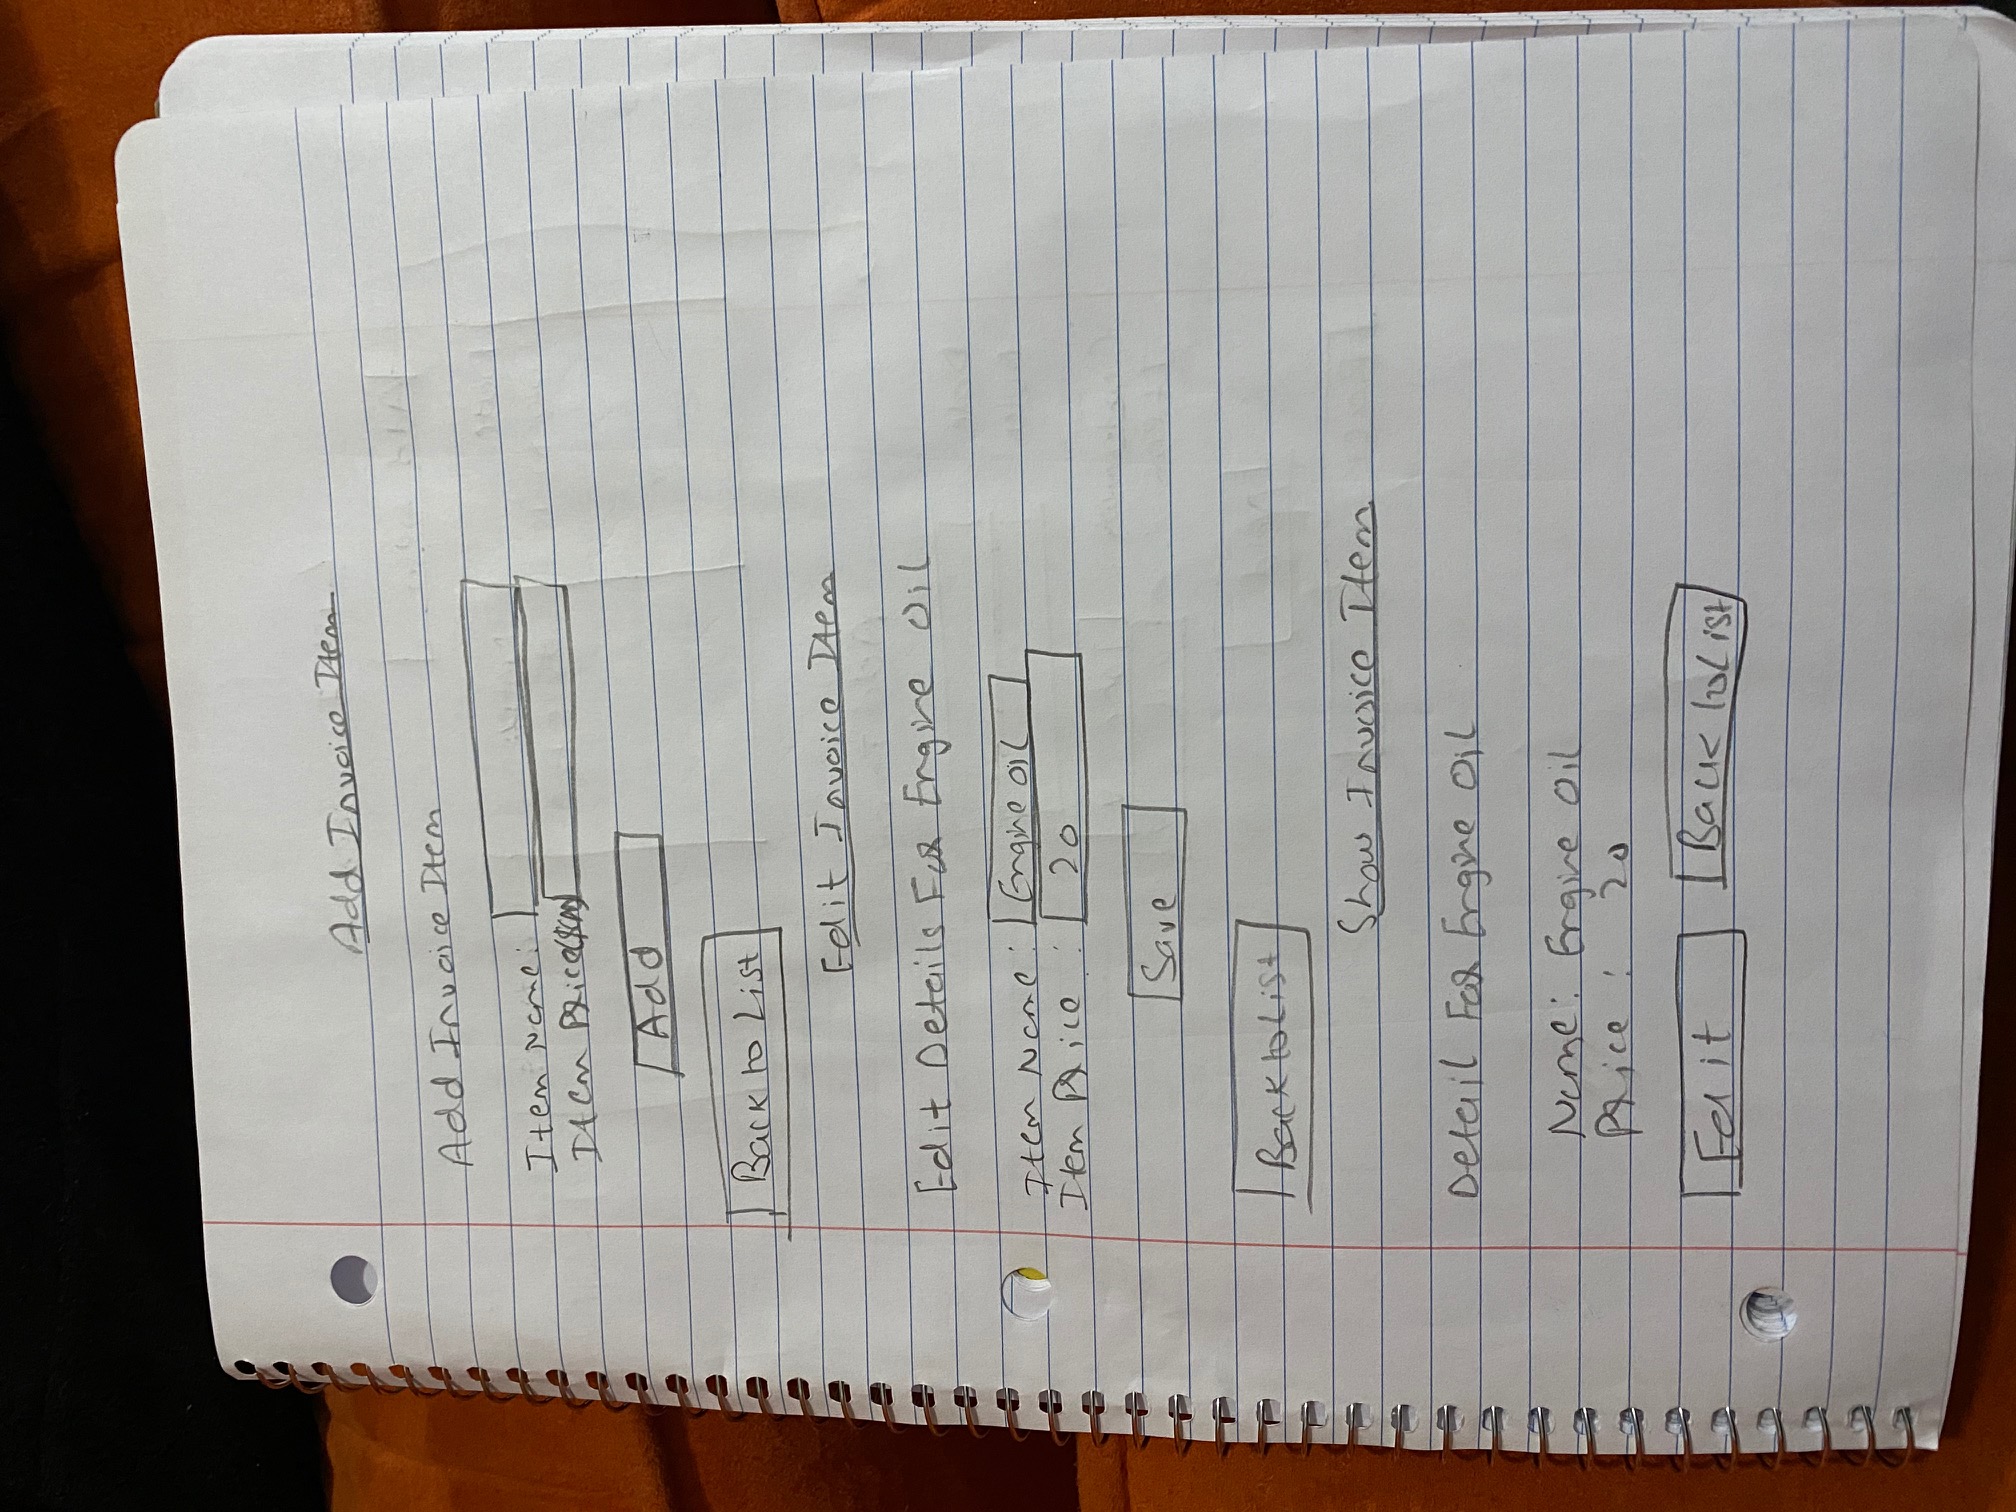 Add Invoice Item
Add Invoice Item
Item Name:
Item Price
Add
Back to List
Edit Invoice Item
Edit Details For Engine Oil
Item Name: Engine oil
Item Price : 20
Save
Back to List
Show Invoice Item
Detail For Engine Oil
Name: Engine Oil
Price : 20
Edit Back to List